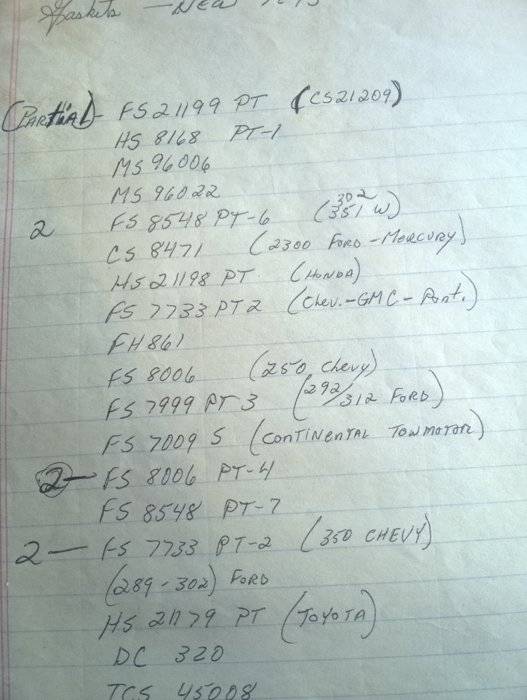 Gaskets - New
(Partial) - FS 21199 PT (CS21209)
HS 8168 PT-1
MS 96006
MS 96022
2 FS 8548 PT-6 (302 351 W)
CS 8471 (2300 FORD - MERCURY)
HS 21198 PT (HONDA)
FS 7733 PT 2 (Chev. - GMC - Pont.)
FH 861
FS 8006 (250 Chevy)
FS 7999 PT 3 (292/312 FORD)
FS 7009 S (CONTINENTAL TOWMOTOR)
2 - FS 8006 PT-4
FS 8548 PT-7
2 - FS 7733 PT-2 (350 CHEVY)
(289 - 302) FORD
HS 21179 PT (TOYOTA)
DC 320
TCS 45008